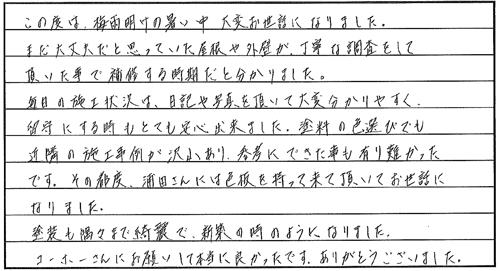 この度は、梅雨明けの暑い中 大変お世話になりました。
まだ大丈夫だと思っていた屋根や外壁が、丁寧な調査をして
頂いた事で補修する時期だと分かりました。
毎日の施工状況は、日記や写真を頂いて大変分かりやすく、
留守にする時もとても安心出来ました。塗料の色選びでも
近隣の施工事例が沢山あり、参考にできた事も有り難かった
です。その都度、浦田さんには色板を持って来て頂いてお世話に
なりました。
塗装も隅々まで綺麗で、新築の時のようになりました。
ユーホーさんにお願いして本当に良かったです。ありがとうございました。